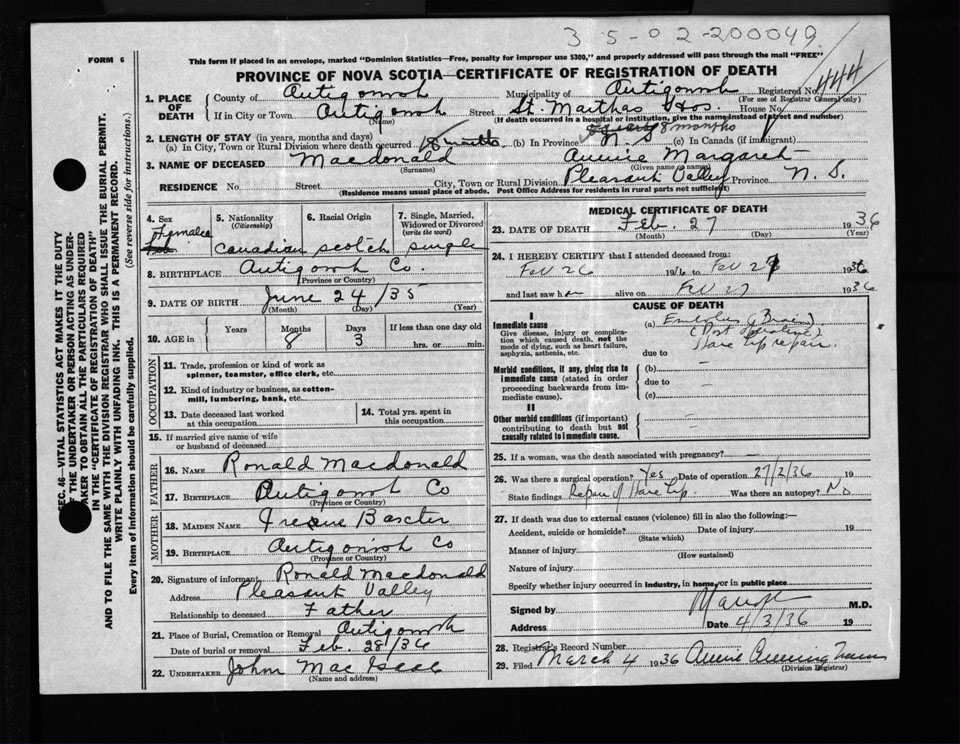 3 5-0 2-200049
FORM 6
This form if placed in an envelope, marked "Dominion Statistics—Free, penalty for improper use $300," and properly addressed will pass through the mail "FREE"
PROVINCE OF NOVA SCOTIA—CERTIFICATE OF REGISTRATION OF DEATH
1. PLACE OF DEATH County of Antigonish Municipality of Antigonish Registered No. 444
(For use of Registrar General only)
If in City or Town Antigonish Street St. Marthas Hos. House No.
(Name) (If death occurred in a hospital or institution, give the name instead of street and number)
2. LENGTH OF STAY (in years, months and days) 8 months
(a) In City, Town or Rural Division where death occurred 8 months (b) In Province N. S (c) In Canada (if immigrant)
3. NAME OF DECEASED Macdonald Annie Margaret
(Surname) (Given name or names)
RESIDENCE No. Street City, Town or Rural Division Pleasant Valley Province N. S.
(Residence means usual place of abode. Post Office Address for residents in rural parts not sufficient)
4. Sex Female
5. Nationality (Citizenship) Canadian
6. Racial Origin scotch
7. Single, Married, Widowed or Divorced (write the word) single
8. BIRTHPLACE Antigonish Co.
(Province or Country)
9. DATE OF BIRTH June 24/35
(Month) (Day) (Year)
10. AGE in Years Months 8 Days 3 If less than one day old hrs. or min.
OCCUPATION
11. Trade, profession or kind of work as spinner, teamster, office clerk, etc.
12. Kind of industry or business, as cotton-mill, lumbering, bank, etc.
13. Date deceased last worked at this occupation
14. Total yrs. spent in this occupation
15. If married give name of wife or husband of deceased
FATHER
16. NAME Ronald Macdonald
17. BIRTHPLACE Antigonish Co
(Province or Country)
MOTHER
18. MAIDEN NAME Irene Baxter
19. BIRTHPLACE Antigonish Co
(Province or Country)
20. Signature of informant Ronald Macdonald
Address Pleasant Valley
Relationship to deceased Father
21. Place of Burial, Cremation or Removal Antigonish
Date of burial or removal Feb. 28/36
22. UNDERTAKER John Mac Isaac
(Name and address)
MEDICAL CERTIFICATE OF DEATH
23. DATE OF DEATH Feb. 27 1936
(Month) (Day) (Year)
24. I HEREBY CERTIFY that I attended deceased from:
Feb 26 1936 to Feb 27 1936
and last saw her alive on Feb 27 1936
CAUSE OF DEATH
I
Immediate cause
Give disease, injury or complication which caused death, not the mode of dying, such as heart failure, asphyxia, asthenia, etc.
(a) Embolus (Brain)
(Post operative)
Hare lip repair.
due to
Morbid conditions, if any, giving rise to immediate cause (stated in order proceeding backwards from immediate cause).
(b)
due to
(c)
II
Other morbid conditions (if important) contributing to death but not causally related to immediate cause.
25. If a woman, was the death associated with pregnancy?
26. Was there a surgical operation? Yes Date of operation 27/2/36 19
State findings Repair of Hare Lip. Was there an autopsy? No
27. If death was due to external causes (violence) fill in also the following:—
Accident, suicide or homicide? Date of injury 19
(State which)
Manner of injury
(How sustained)
Nature of injury
Specify whether injury occurred in industry, in home, or in public place
Signed by M.D.
Address Date 4/3/36 19
28. Registrar's Record Number
29. Filed March 4 1936 Annie Cunningham
(Division Registrar)
SEC. 46—VITAL STATISTICS ACT MAKES IT THE DUTY
OF THE UNDERTAKER OR PERSON ACTING AS UNDERTAKER TO OBTAIN ALL THE PARTICULARS REQUIRED
IN THE "CERTIFICATE OF REGISTRATION OF DEATH"
AND TO FILE THE SAME WITH THE DIVISION REGISTRAR WHO SHALL ISSUE THE BURIAL PERMIT.
WRITE PLAINLY WITH UNFADING INK. THIS IS A PERMANENT RECORD.
Every item of information should be carefully supplied. (See reverse side for instructions.)